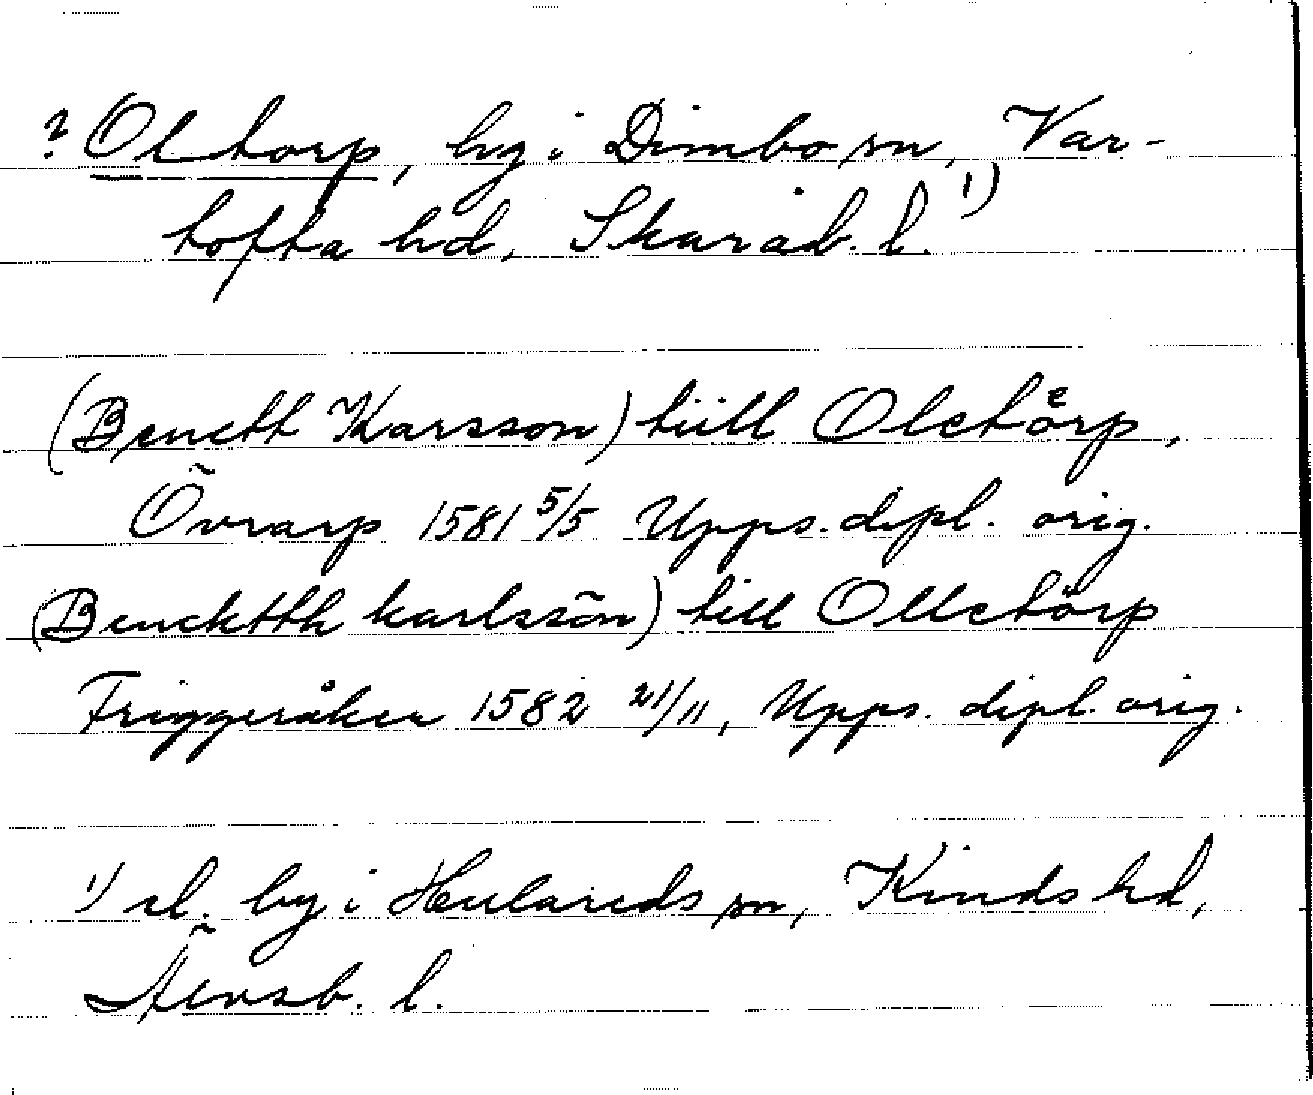 ? Oltorp, by i Dimbo sn, Var-
tofta hd, Skarab. l. 1)
(Benctt Karsson) tiill Oletoͤrp,
Övrarp 1581 5/5 Upps. dipl. orig.
(Bencktth karlssön) till Olletörp
Friggeråker 1582 21/11, Upps. dipl. orig.
1) el. by i Hulareds sn, Kinds hd,
Älvsb. l.